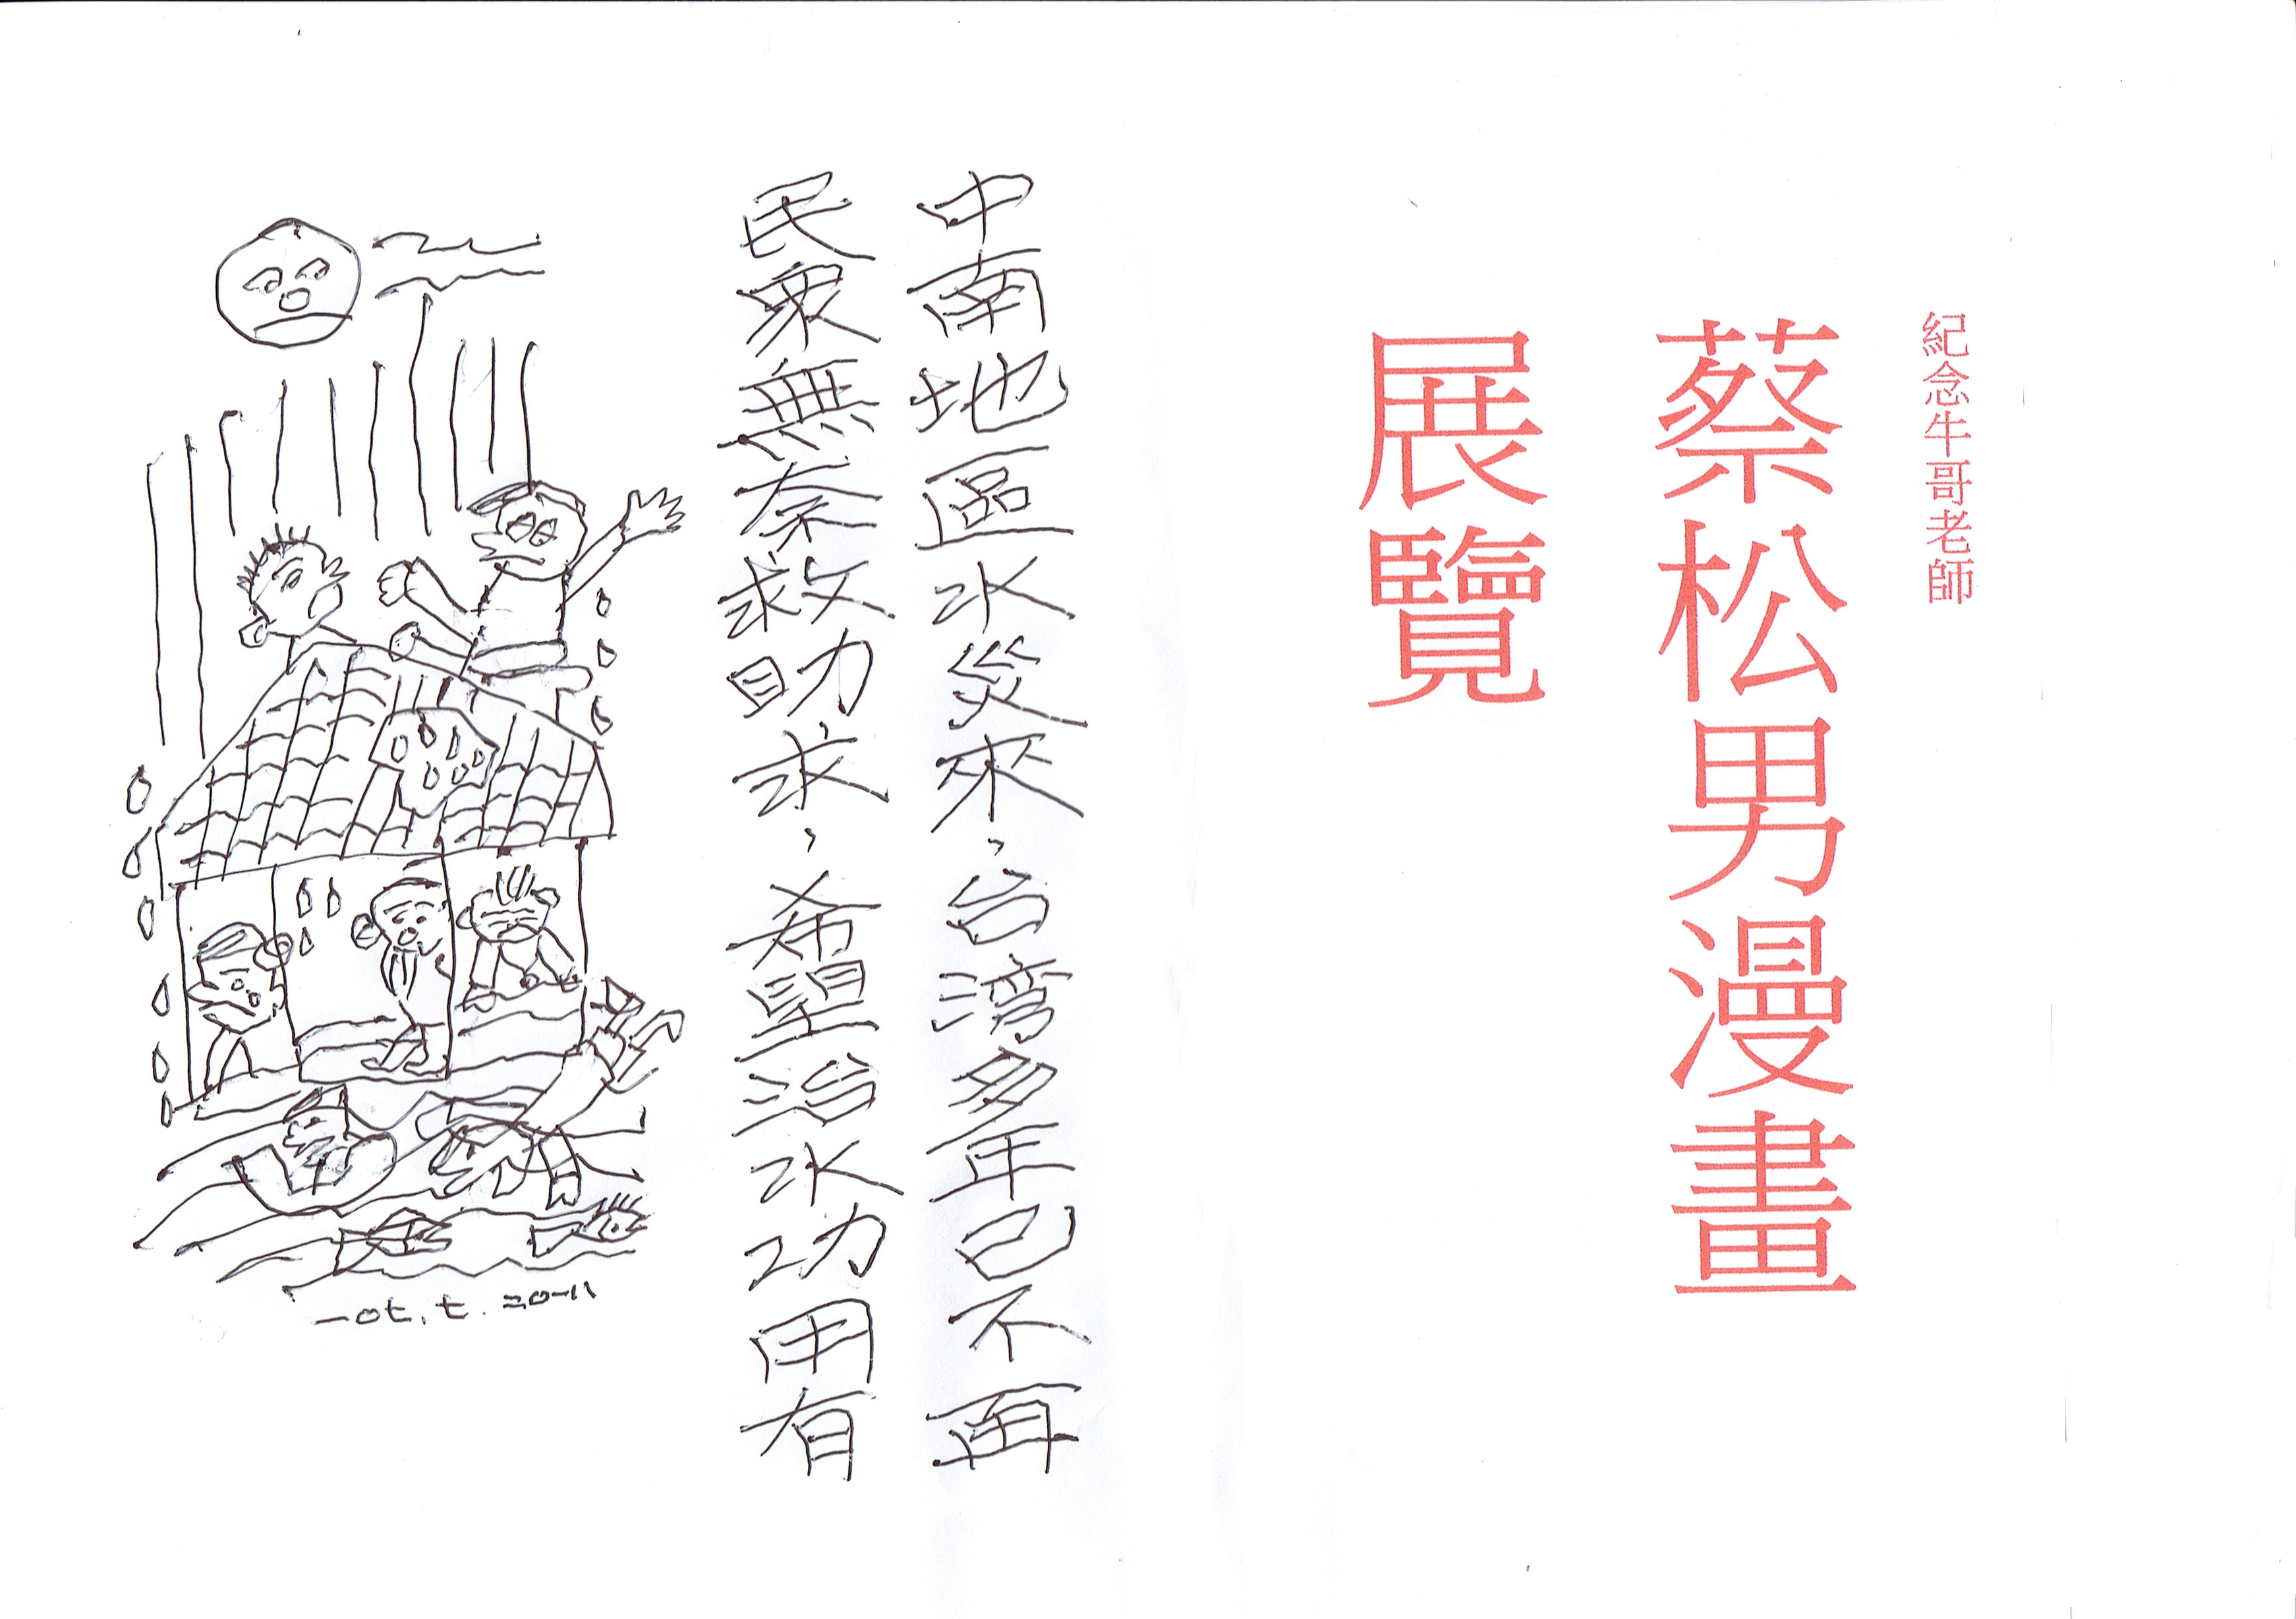 紀念牛哥老師
蔡松男漫畫
展覽
中南地區水災來，台湾多年已不再
民衆無奈救助求，希望治水功用有
一〇七.七.二〇一八